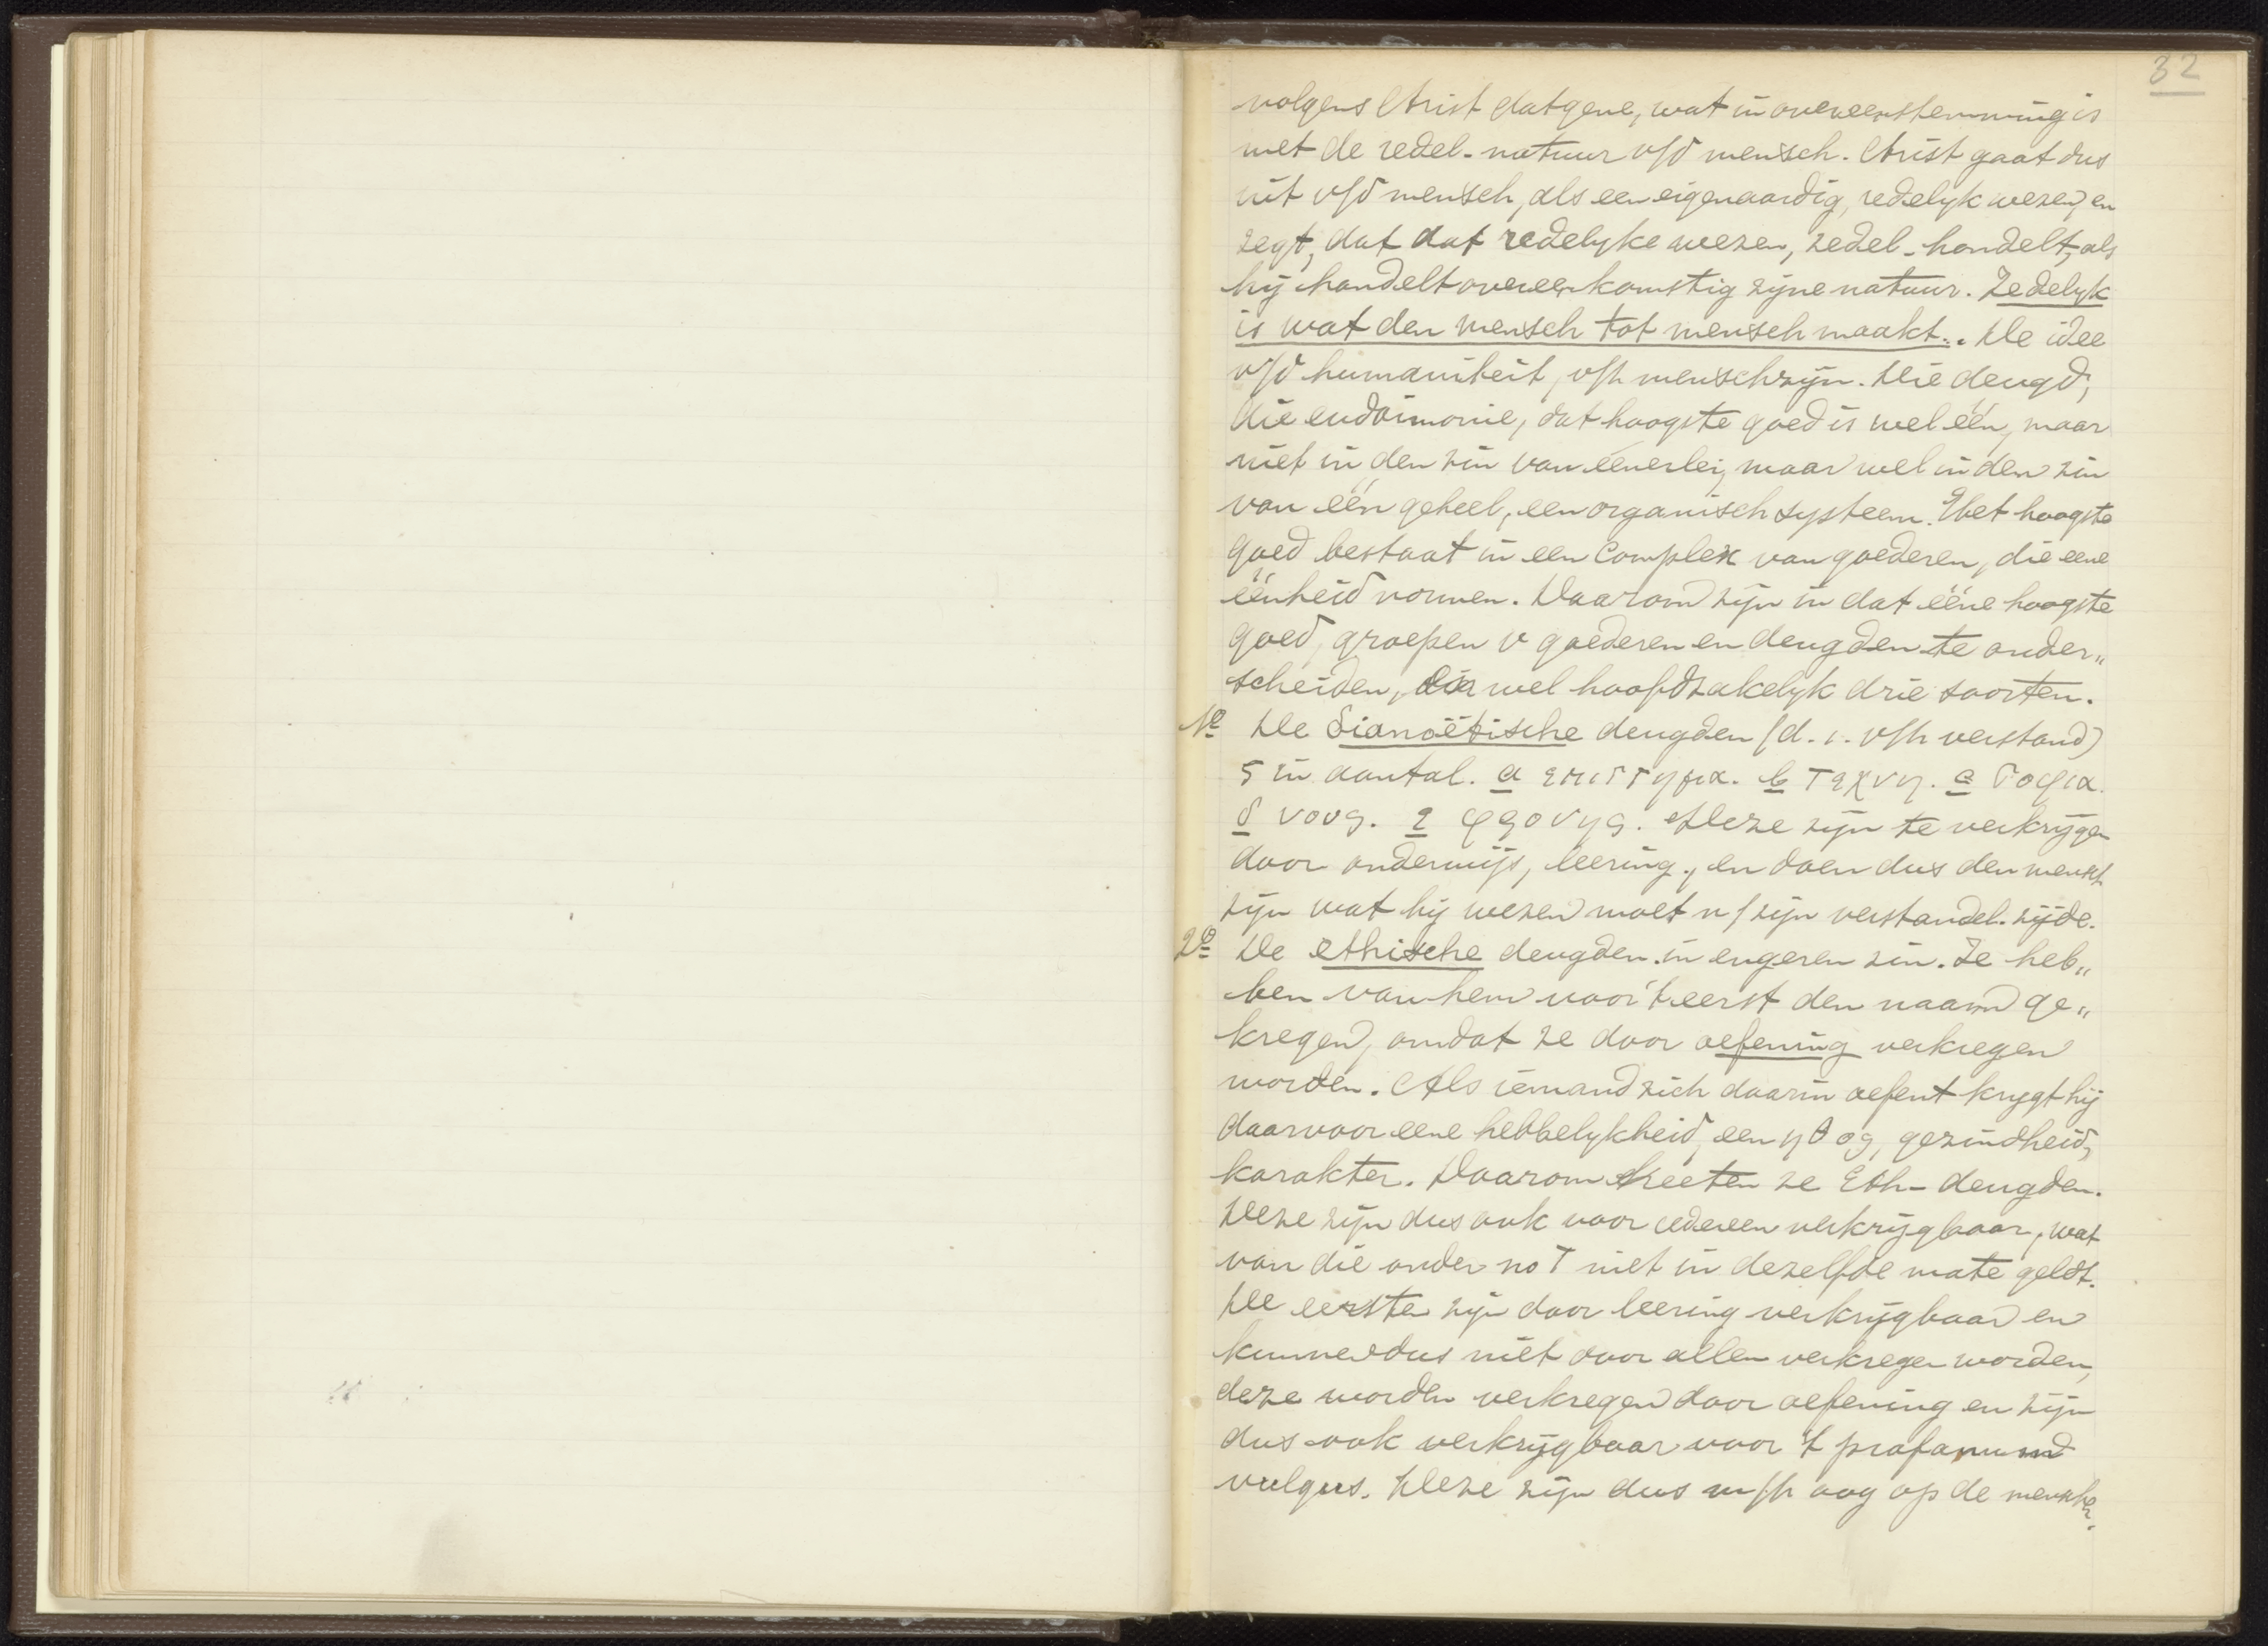 32
volgens Arist datgene, wat in overeenstemming is
met de redel. natuur v/d mensch. Arist gaat dus
uit v/d mensch, als een eigenaardig, redelyk wezen, en
zegt, dat dat redelyke wezen, zedel. handelt, als
hij handelt overeenkomstig zijne natuur. Zedelyk
is wat den mensch tot mensch maakt.. De idee
v/d humaniteit, v/h menschzijn. Die deugd,
die eudaimonie, dat hoogste goed is wel één, maar
niet in den zin van éénerlei, maar wel in den zin
van één geheel, een organisch systeem. Het hoogste
goed bestaat in een complex van goederen, die eene
éénheid vormen. Daarom zijn in dat ééne hoogste
goed, groepen v goederen en deugden te onder„
scheiden, wel hoofdzakelyk drie soorten.
1e De Dianoëtische deugden (d. i. v/h verstand)
5 in aantal. a επιστημα. b τεχνη. c σοφια.
d νους. e φρονης. Deze zijn te verkrijgen
door onderwijs, leering, en doen dus den mensch
zijn wat hij wezen moet n/zijn verstandel. zijde.
2e De ethische deugden in engeren zin. Ze heb„
ben van hem voor 't eerst den naam ge„
kregen, omdat ze door oefening verkregen
worden. Als iemand zich daarin oefent krygt hij
daarvoor eene hebbelykheid, een ηθος, gezindheid,
karakter. Daarom heeten ze Eth- deugden.
Deze zijn dus ook voor iedereen verkrijgbaar, wat
van die onder no I niet in dezelfde mate geldt.
De eerste zijn door leering verkrijgbaar en
kunnen dus niet door allen verkregen worden,
deze worden verkregen door oefening en zijn
dus ook verkrijgbaar voor 't profanum
vulgus. Deze zijn dus m/h oog op de mensche.